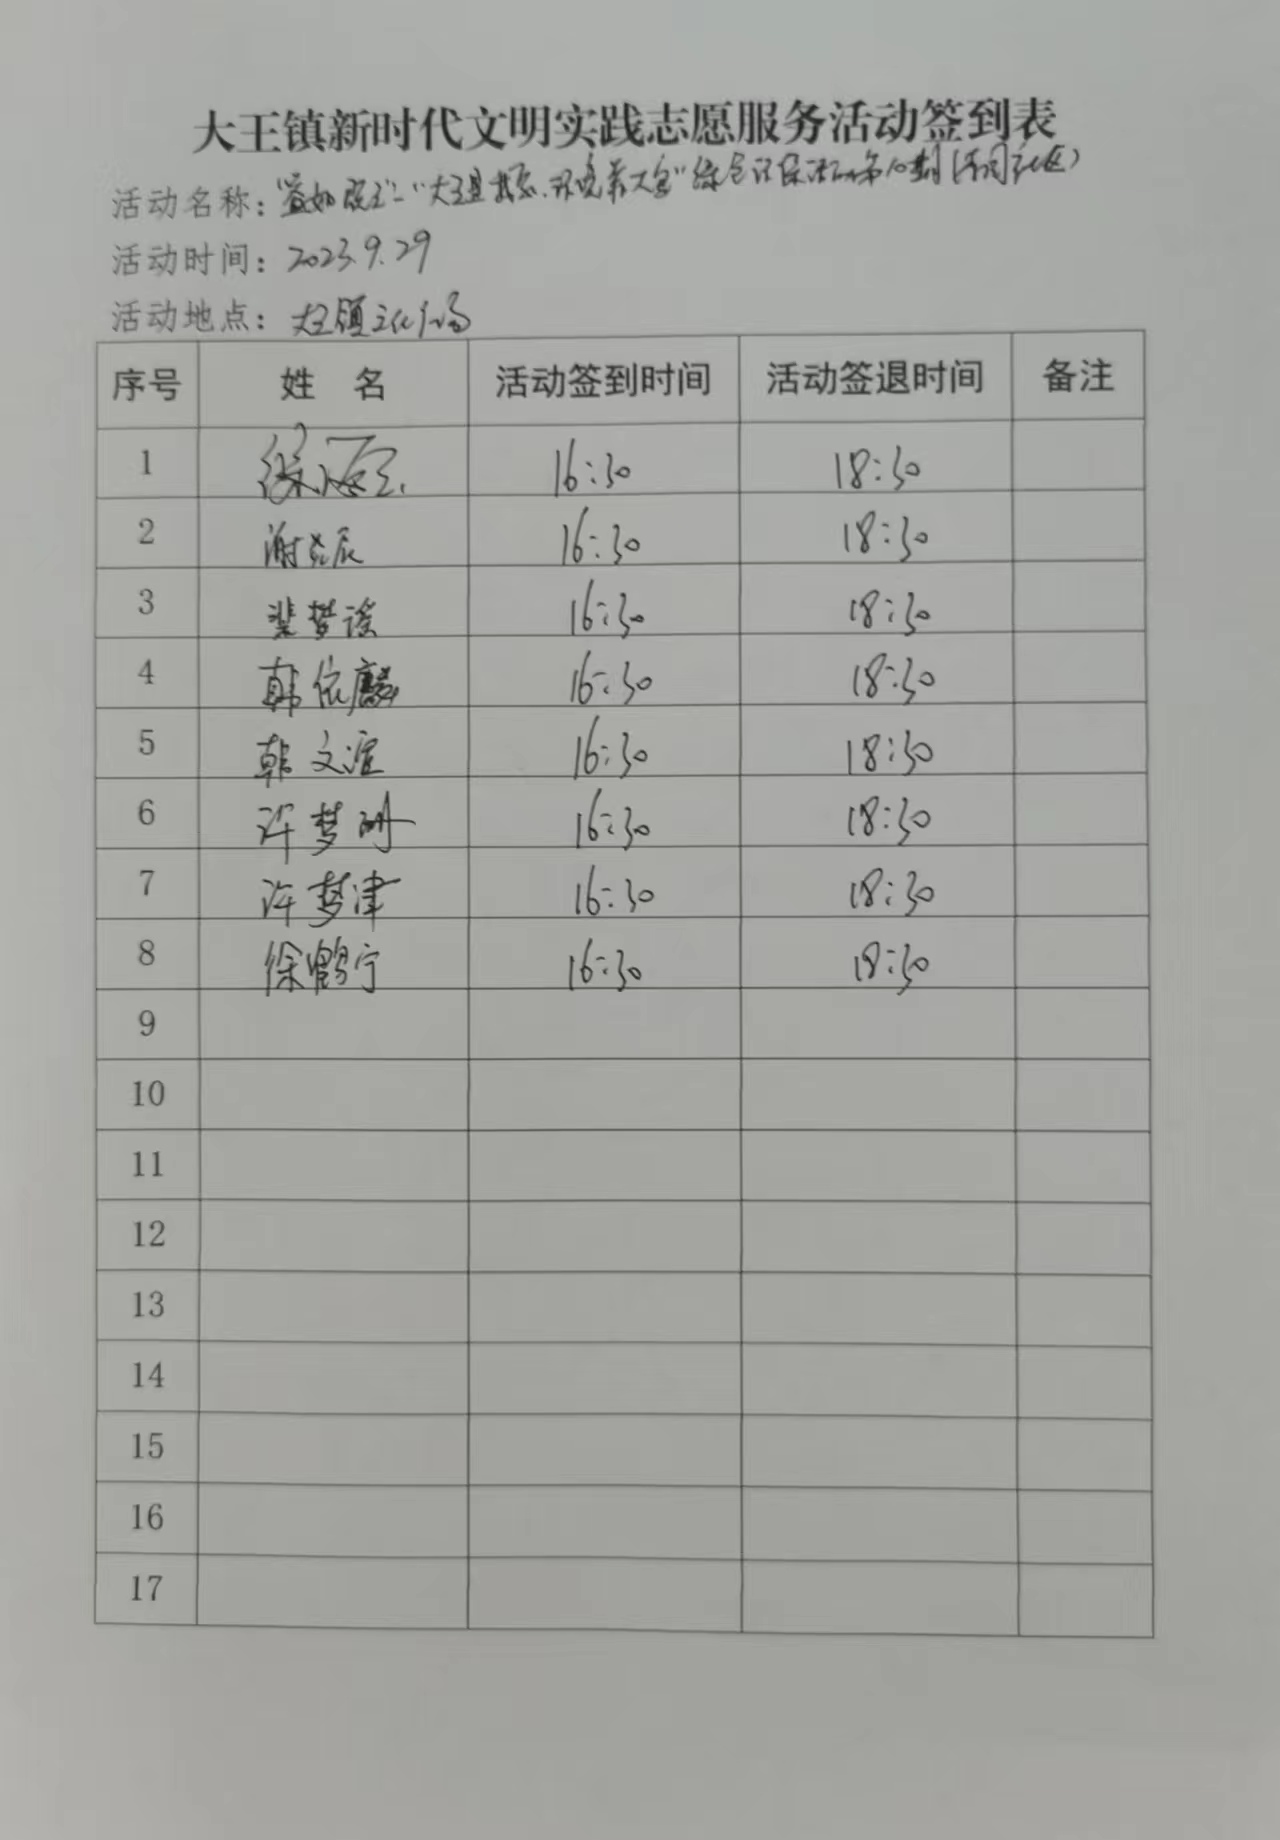 大王镇新时代文明实践志愿服务活动签到表
活动名称：
活动时间：2023.9.29
活动地点：大王镇文化广场
序号 姓 名 活动签到时间 活动签退时间 备注
1 徐 16:30 18:30
2 谢 辰 16:30 18:30
3 裴梦谣 16:30 18:30
4 韩依麟 16:30 18:30
5 韩文 16:30 18:30
6 许梦 16:30 18:30
7 许梦津 16:30 18:30
8 徐鹤宁 16:30 18:30
9
10
11
12
13
14
15
16
17